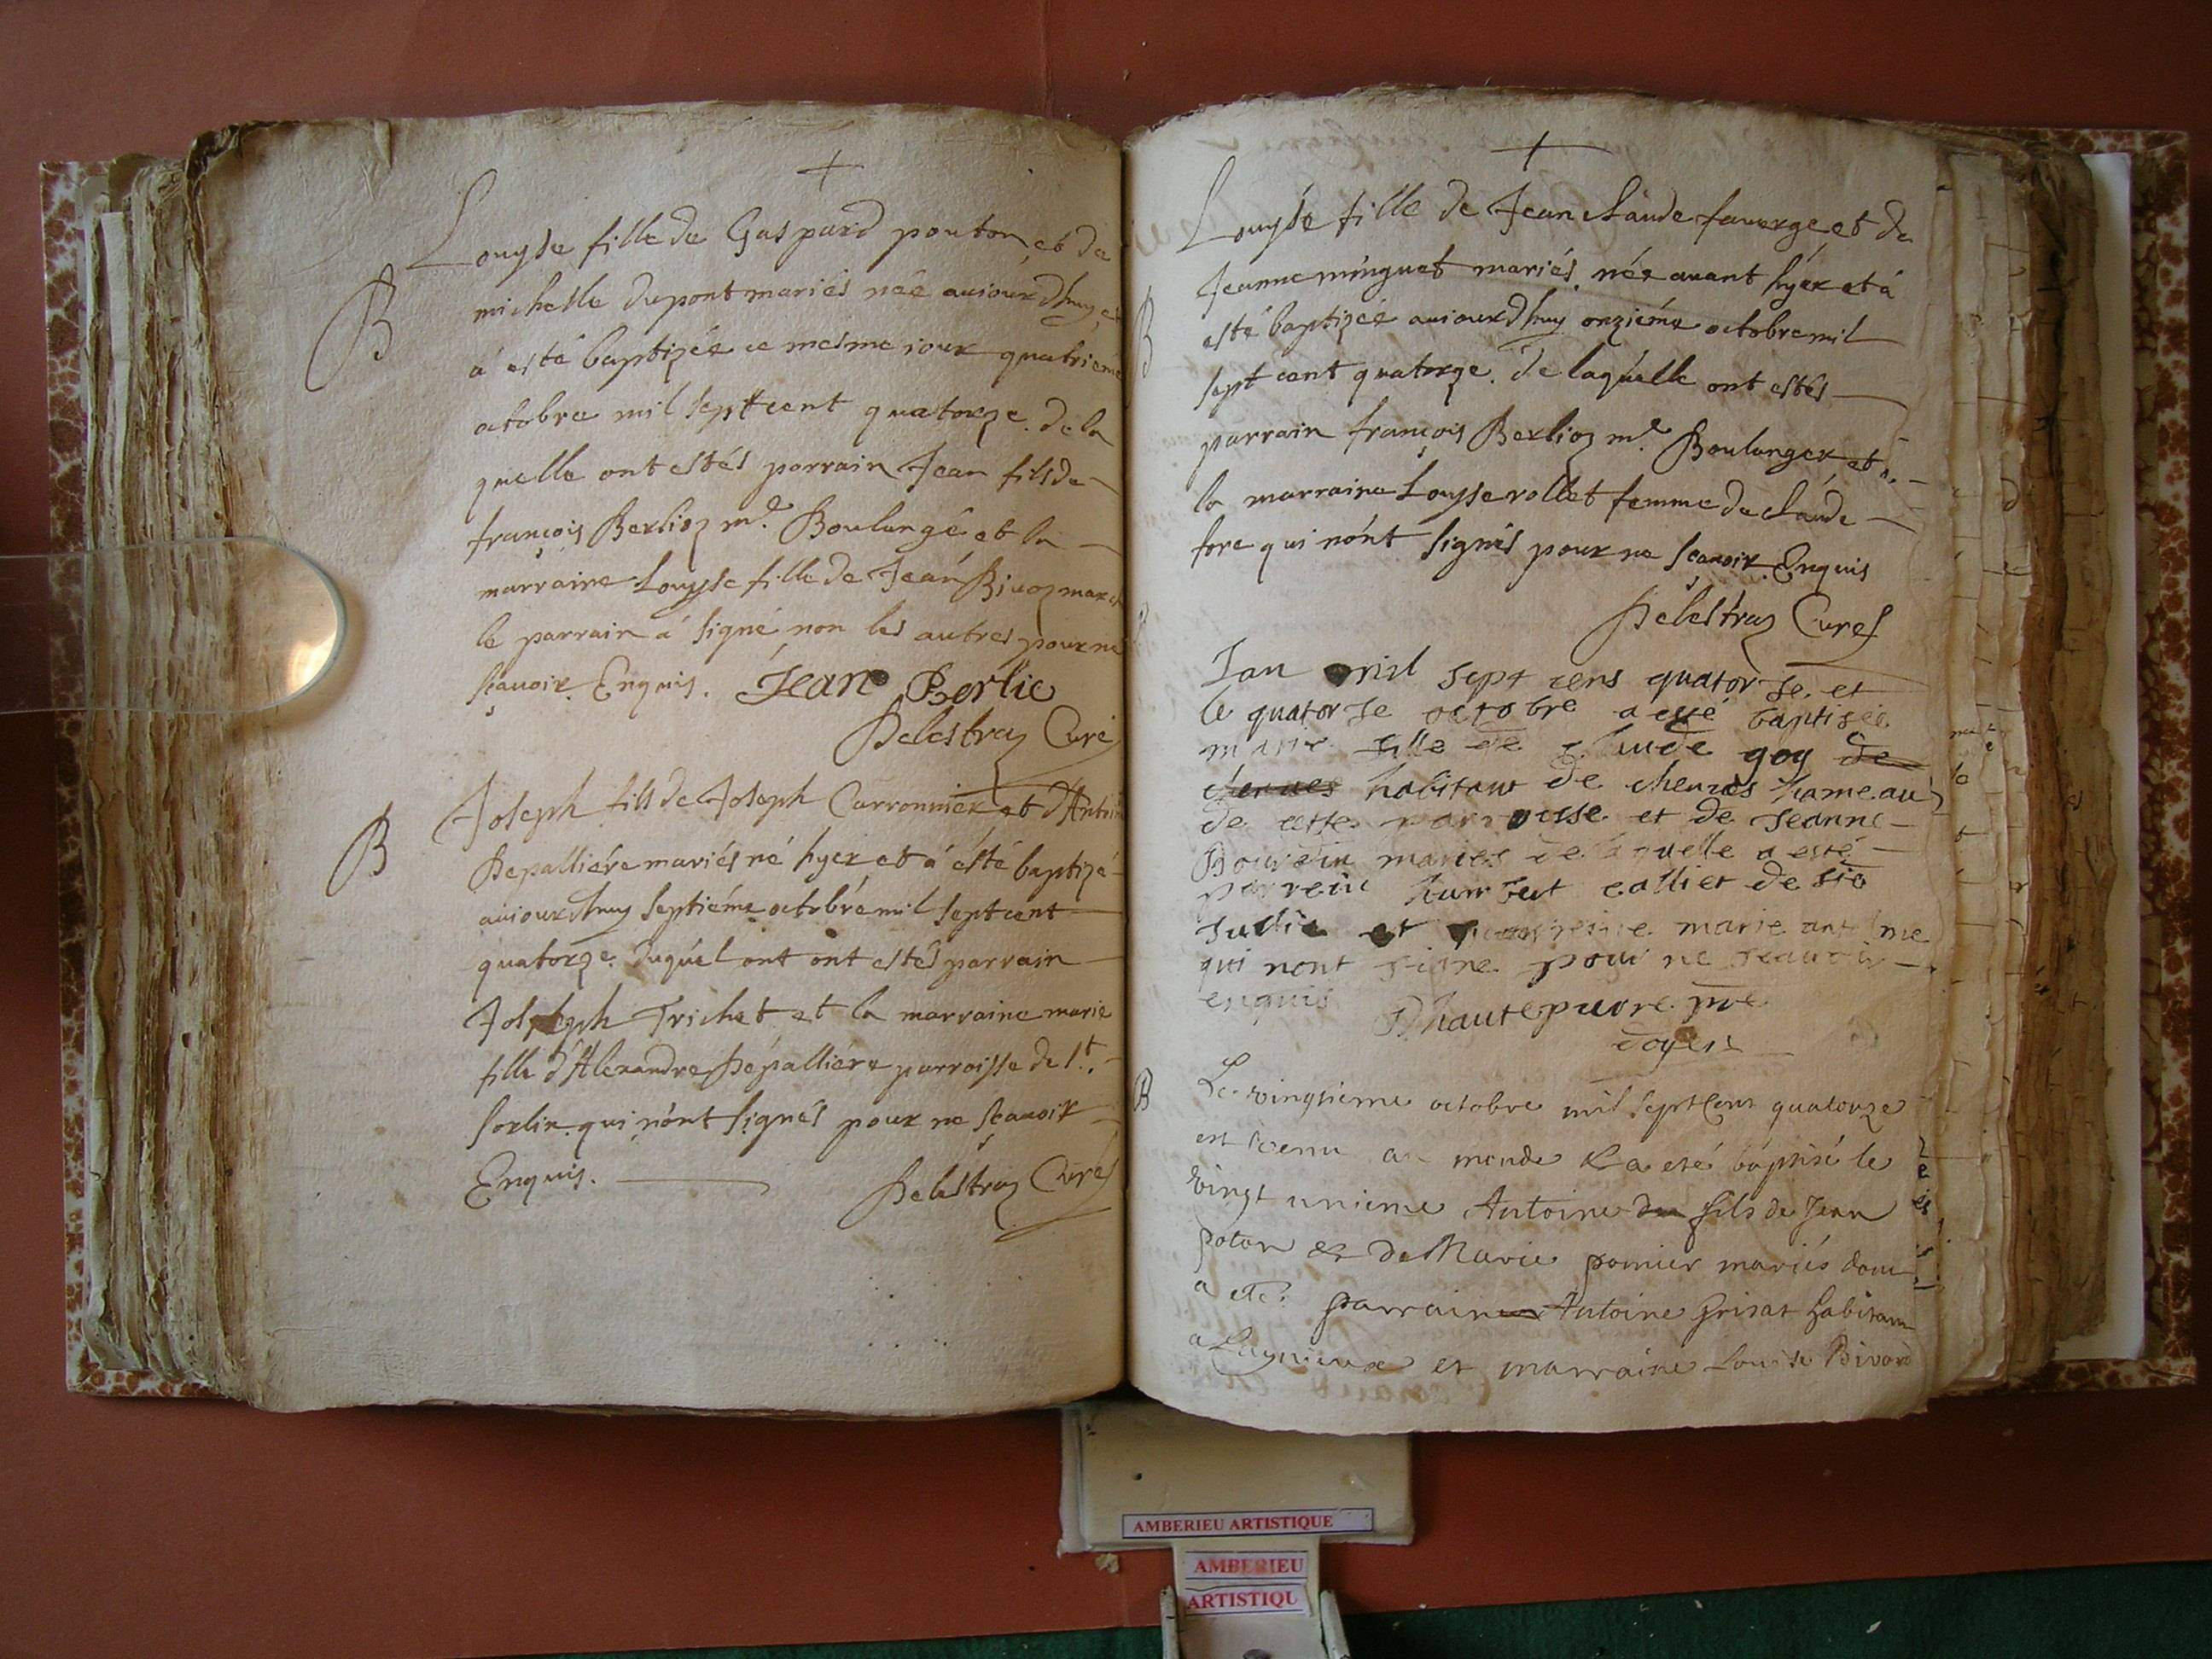 Louyse fille de Gaspard pouton et de
B
michelle dupont mariés née auiourdhuy et
à esté baptizée ce mesme iour quatriéme
octobre mil sept cent quatorze. de la
quelle ont estés parrain Jean fils de
françois Berlioz md. Boulangé et la
marraine Louyse fille de Jean Bivoz march
le parrain à signé non les autres pour ne
sçavoir Enquis. Jean Berlio
Delestraz Curé
Joseph fils de Joseph Carronnier et d'Antoin
B
Depalliére mariés né hyer et à ésté baptizé
auiourdhuy septiéme octobre mil sept cent
quatorze. duquel ont ont estés parrain
Joseph Trichet et la marraine marie
fille d'Alexandre Depalliére parroisse de St.
Sorlin qui n'ont signés pour ne sçavoir
Enquis. Delestraz Curé
Louyse fille de Jean claude faverge et de
Jeanne minguet mariés. née avant hyer et à
B
esté baptizée auiourdhuy onziéme octobre mil
sept cent quatorze. de laquelle ont estés
parrain françois Berlioz md. Boulanger et
la marraine Louyse rollet femme de claude
fore qui n'ont signés pour ne sçavoir Enquis
Delestraz Curé
Lan mil sept cens quatorse et
le quatorse octobre a esté baptisée
marie fille de claude goy de
cheures habitant de cheures hameau
de cette parroisse et de Jeanne
Bourdin mariés de laquelle a esté
parrein humbert callier de
Jullie et marreine marie antelme
qui nont signe pour ne scauoir
enquis Dhautepierre pre
doyen
B
Le vingtieme octobre mil sept cent quatorze
est venu au monde & a eté baptisé le
vingt unieme Antoine du fils de Jean
poton & de Marie pomier mariés dont
a eté parrain Antoine Grisat habitant
a Lagnieux et marraine Louise Bivord
AMBERIEU ARTISTIQUE
AMBERIEU
ARTISTIQU